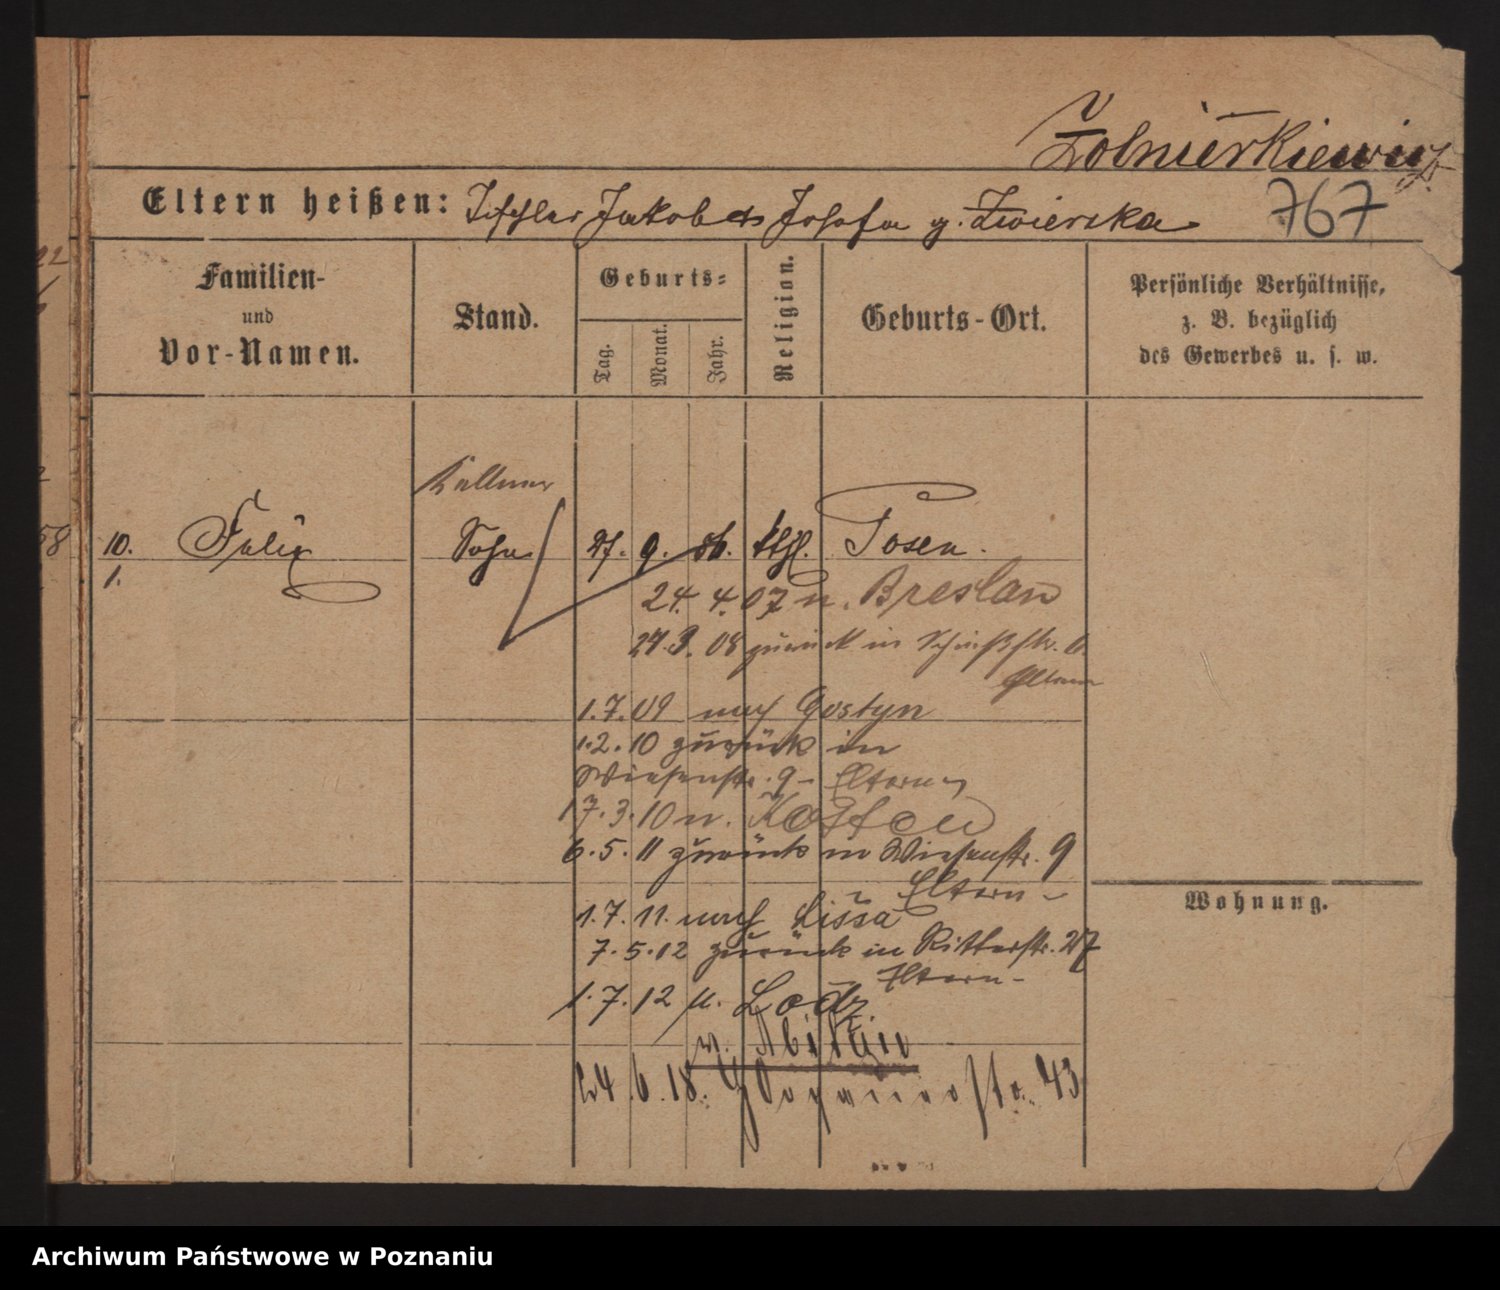 Żołnierkiewicz
Eltern heißen: Tischler Jakob u. Josefa g. Zwierzka 767
Familien-
und
Vor-Namen.
Stand.
Geburts-
Tag. Monat. Jahr.
Religion.
Geburts-Ort.
Persönliche Verhältnisse,
z. B. bezüglich
des Gewerbes u. s. w.
Kellner
10. Felix Sohn 27. 9. kthl. Posen.
1.
24. 4. 07 n. Breslau
zurück in Schießstr. 6
Eltern
1.7.09 nach Gostyn
1.2.10 zurück in
Wiesenstr. 9 – Eltern
17.3.10 n. Kosten
6.5.11 zurück in Wiesenstr. 9
Eltern –
1.7.11. nach Lissa
7.5.12 zurück in Ritterstr. 27
Eltern –
1.7.12 n. Lodz
24.6.18. 43
Wohnung.
Archiwum Państwowe w Poznaniu